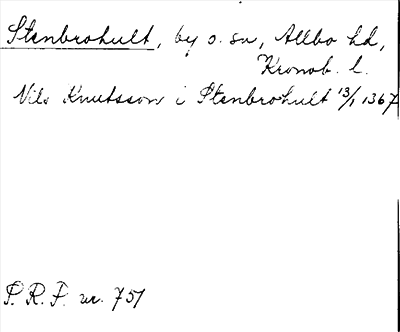 Stenbrohult, by o. sn, Allbo hd,
Kronob. l.
Nils Knutsson i Stenbrohult 13/1 1367
P.R.P. nr. 751